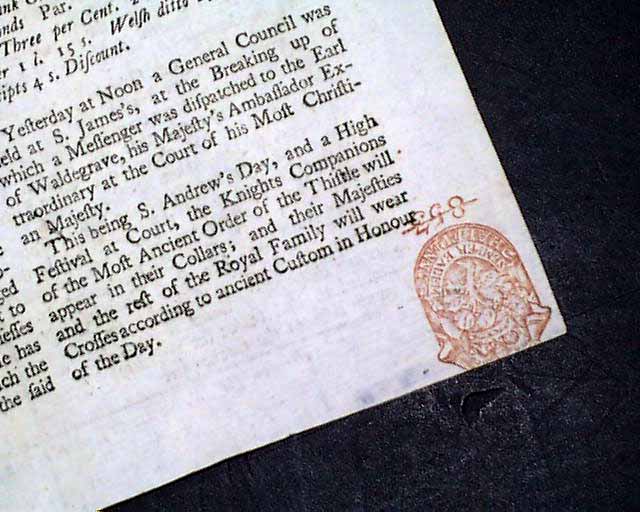 nds Par.
Three per Cent.
r 1 l. 15 s. Welſh ditto
ipts 4 s. Diſcount.
Yeſterday at Noon a General Council was
eld at S. James's, at the Breaking up of
which a Meſſenger was diſpatched to the Earl
of Waldegrave, his Majeſty's Ambaſſador Ex-
traordinary at the Court of his Moſt Chriſti-
an Majeſty.
This being S. Andrew's Day, and a High
Feſtival at Court, the Knights Companions
of the Moſt Ancient Order of the Thiſtle will
appear in their Collars; and their Majeſties
and the reſt of the Royal Family will wear
Croſſes according to ancient Cuſtom in Honour
of the Day.
ged
f to
ieſſes
e has
ich the
the ſaid
298